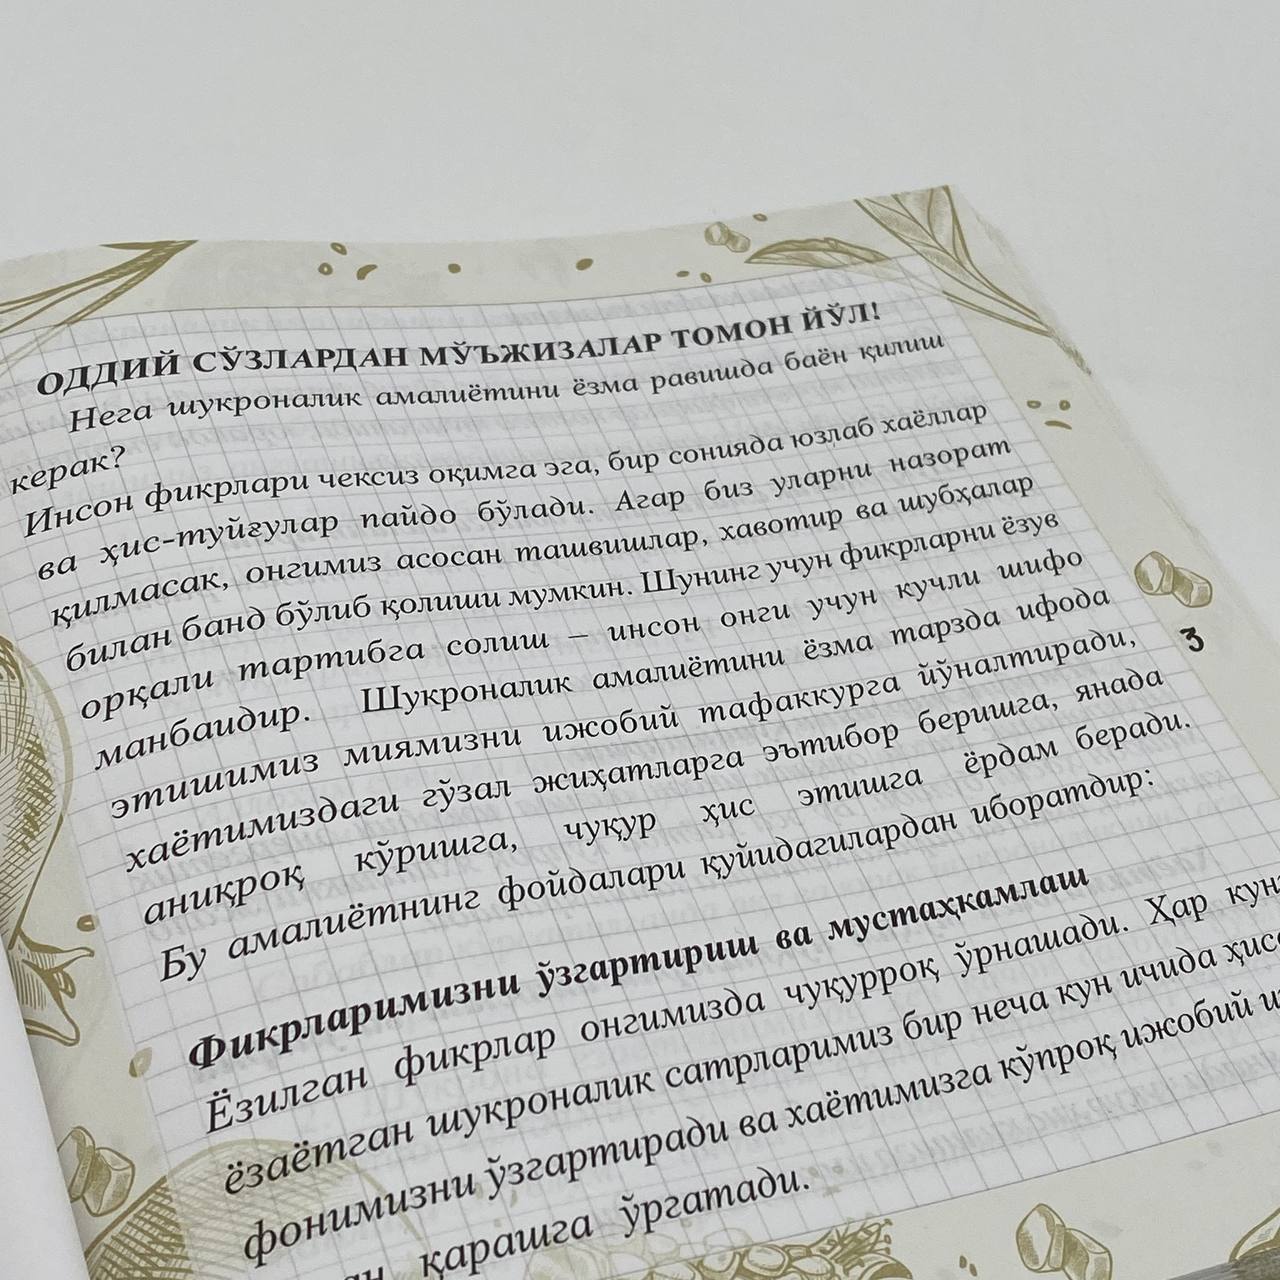 ОДДИЙ СЎЗЛАРДАН МЎЪЖИЗАЛАР ТОМОН ЙЎЛ!
Нега шукроналик амалиётини ёзма равишда баён қилиш
керак?
Инсон фикрлари чексиз оқимга эга, бир сонияда юзлаб хаёллар
ва ҳис-туйғулар пайдо бўлади. Агар биз уларни назорат
қилмасак, онгимиз асосан ташвишлар, хавотир ва шубҳалар
билан банд бўлиб қолиши мумкин. Шунинг учун фикрларни ёзув
орқали тартибга солиш – инсон онги учун кучли шифо
манбаидир. Шукроналик амалиётини ёзма тарзда ифода
этишимиз миямизни ижобий тафаккурга йўналтиради,
хаётимиздаги гўзал жиҳатларга эътибор беришга, янада
аниқроқ кўришга, чуқур ҳис этишга ёрдам беради.
Бу амалиётнинг фойдалари қуйидагилардан иборатдир:
Фикрларимизни ўзгартириш ва мустаҳкамлаш
Ёзилган фикрлар онгимизда чуқурроқ ўрнашади. Ҳар
ёзаётган шукроналик сатрларимиз бир неча кун ичида
фонимизни ўзгартиради ва хаётимизга кўпроқ ижобий
қарашга ўргатади.
3